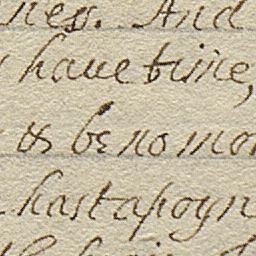 ness. And
haue time,
& be no mor
hast apoyn